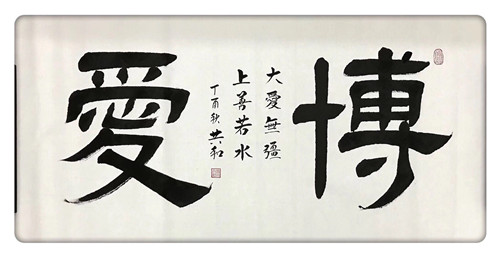 博愛
大愛無疆
上善若水
丁酉秋共和